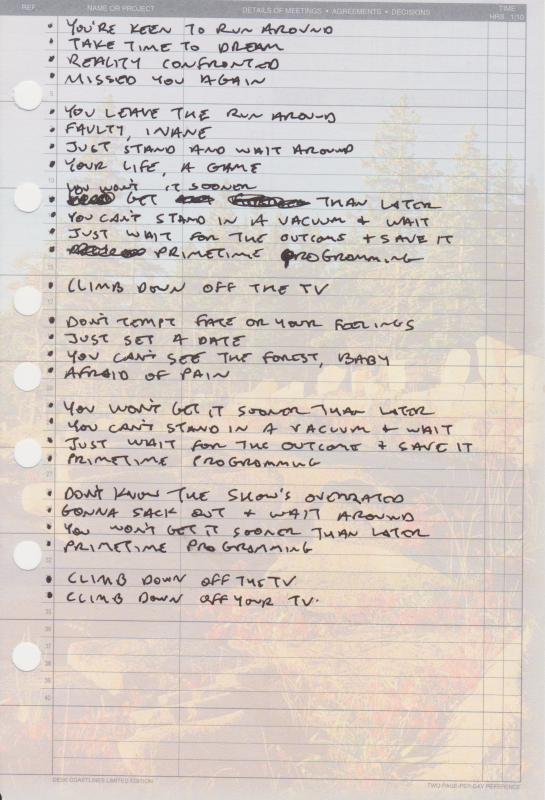 REF. NAME OR PROJECT DETAILS OF MEETINGS • AGREEMENTS • DECISIONS TIME HRS. 1/10
• YOU'RE KEEN TO RUN AROUND
• TAKE TIME TO DREAM
• REALITY CONFRONTED
• MISSED YOU AGAIN
• YOU LEAVE THE RUN AROUND
• FAULTY, INANE
• JUST STAND AND WAIT AROUND
• YOUR LIFE, A GAME
YOU WON'T IT SOONER
• GET THAN LATER
• YOU CAN'T STAND IN A VACUUM + WAIT
• JUST WAIT FOR THE OUTCOME + SAVE IT
• PRIMETIME PROGRAMMING
• CLIMB DOWN OFF THE TV
• DON'T TEMPT FATE OR YOUR FEELINGS
• JUST SET A DATE
• YOU CAN'T SEE THE FOREST, BABY
• AFRAID OF PAIN
• YOU WON'T GET IT SOONER THAN LATER
• YOU CAN'T STAND IN A VACUUM + WAIT
• JUST WAIT FOR THE OUTCOME + SAVE IT
• PRIMETIME PROGRAMMING
• DON'T KNOW THE SHOW'S OVERRATED
• GONNA SACK OUT + WAIT AROUND
• YOU WON'T GET IT SOONER THAN LATER
• PRIMETIME PROGRAMMING
• CLIMB DOWN OFF THE TV
• CLIMB DOWN OFF YOUR TV.
DESK COASTLINES LIMITED EDITION
TWO-PAGE-PER-DAY REFERENCE